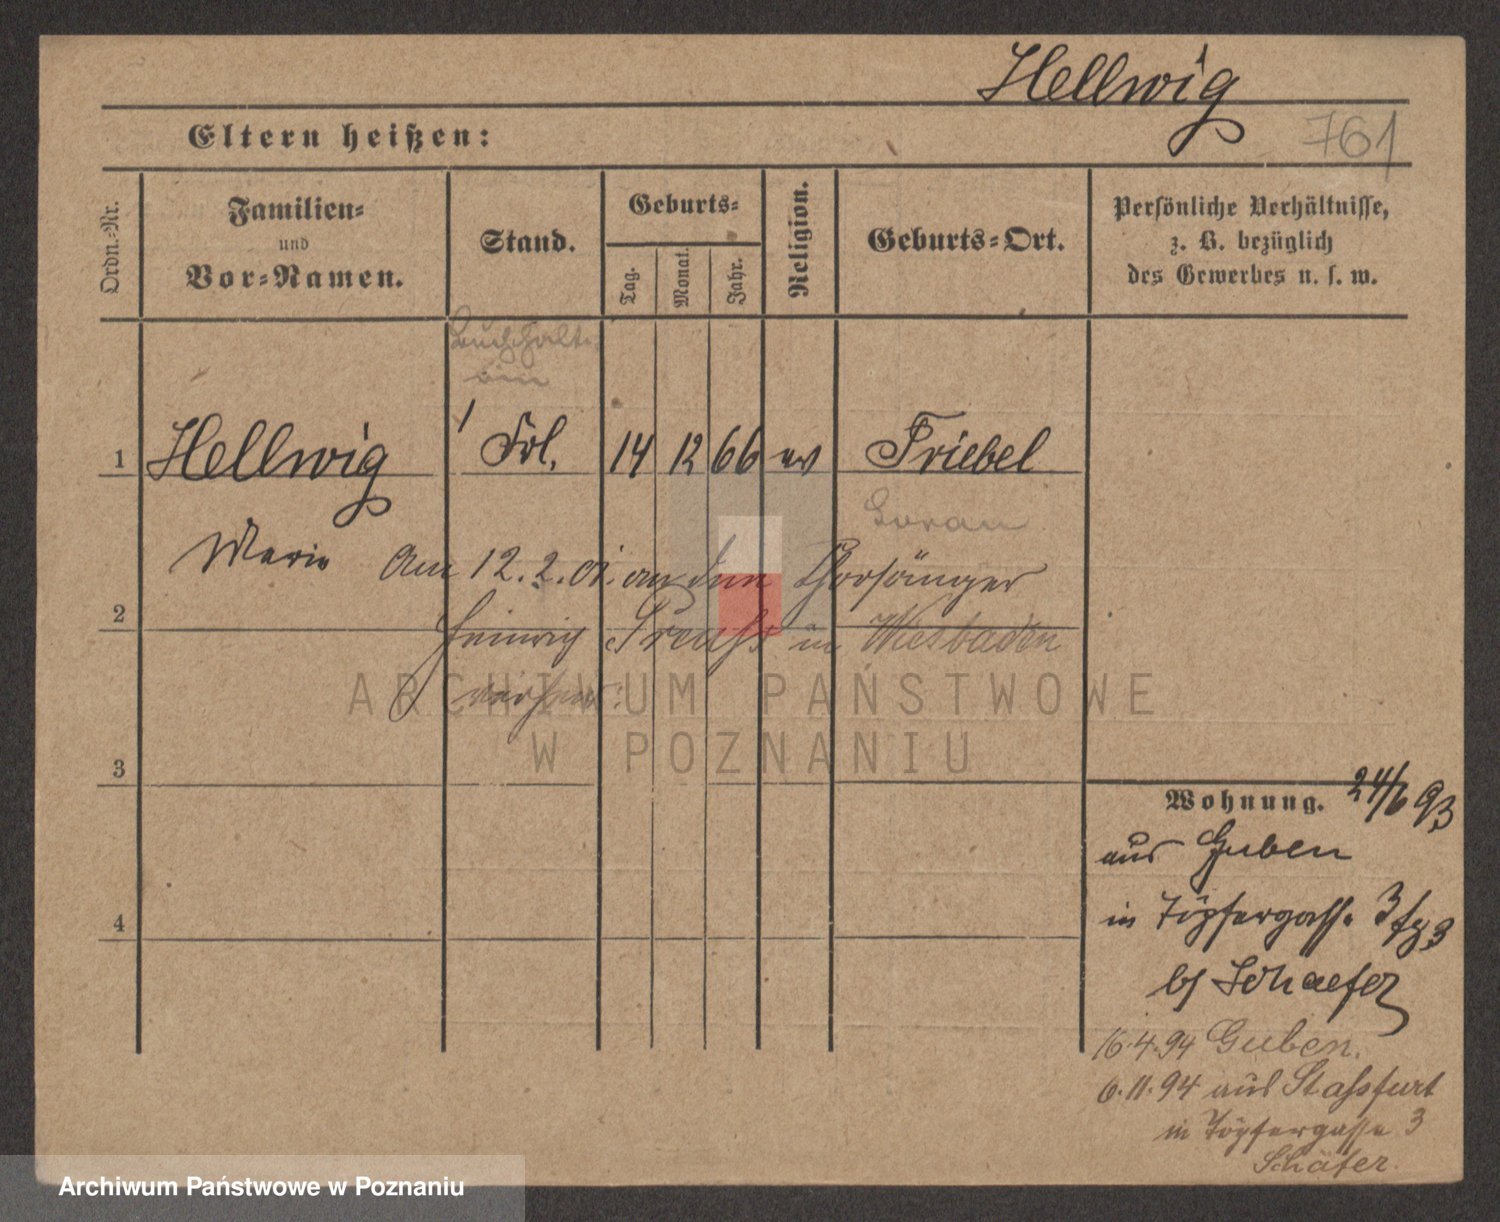 Hellwig
761
Eltern heißen:
Ordn.-Nr.
Familien-
und
Vor-Namen.
Stand.
Geburts-
Tag.
Monat.
Jahr.
Religion.
Geburts-Ort.
Persönliche Verhältnisse,
z. B. bezüglich
des Gewerbes u. s. w.
Buchhalt-
erin
1 Hellwig Frl. 14 12 66 ev Triebel
Sorau
Marie Am 12.2.01. an den Chorsänger
2 Heinrich Preuß in Wiesbaden
ARCHIWUM PAŃSTWOWE
W POZNANIU
3
4
Wohnung. 24/6 93
aus Guben
in Töpfergasse 3
b/ Schaefer
16.4.94 Guben.
6.11.94 aus Stassfurt
in Töpfergasse 3
Schäfer.
Archiwum Państwowe w Poznaniu